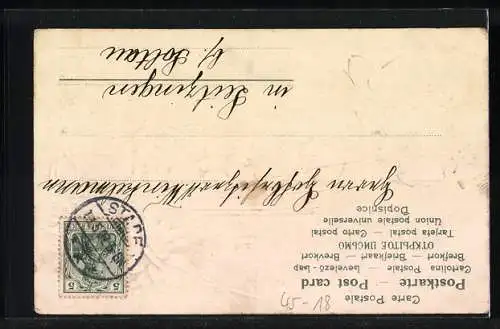 Carte Postale
Postkarte — Post card
Cartolina Postale — Levelező-Lap
Brefkort — Briefkaart — Brevkort
ОТКРЫТОЕ ПИСЬМО
Tarjeta postal — Carto postal
Union postale universelle
Dopisnice
Herrn
in
b/. Soltau
STADE
5 5
45-18